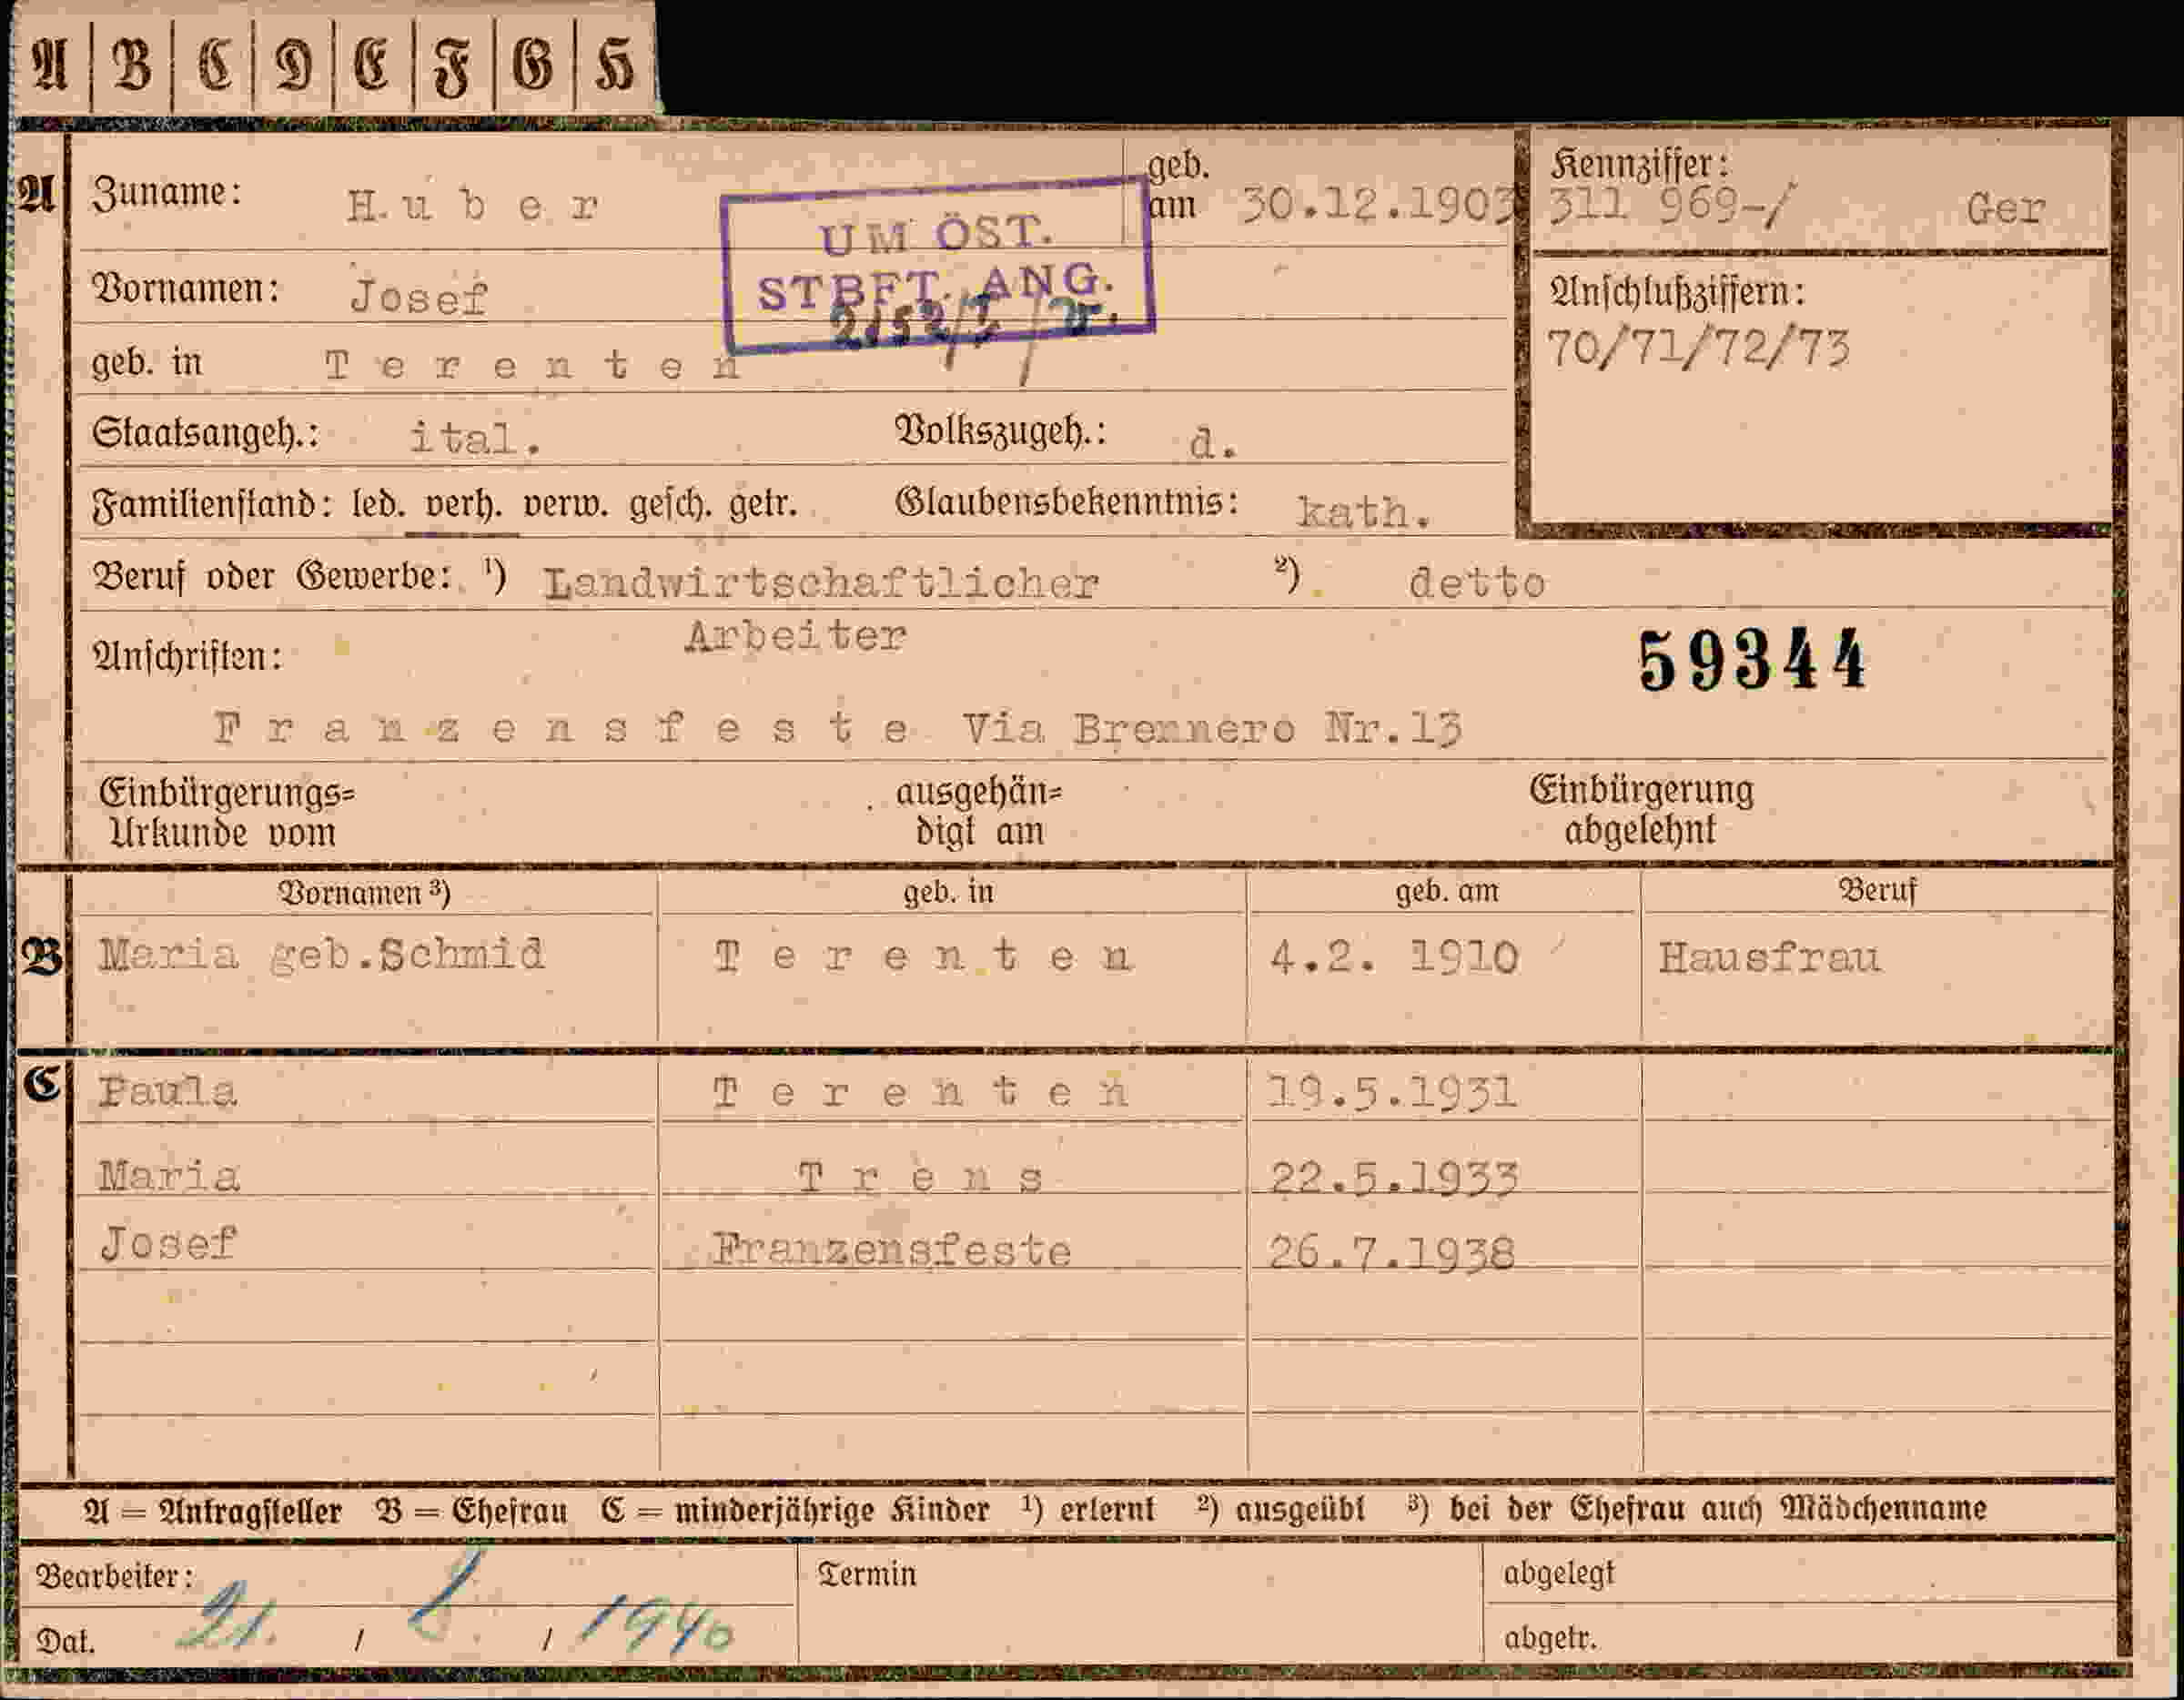 A B C D E F G H
A Zuname: Huber geb. am 30.12.1903 Kennziffer: 311 969-/ Ger
UM ÖST.
STBFT. ANG.
Vornamen: Josef Anschlußziffern:
70/71/72/73
geb. in Terenten
Staatsangeh.: ital. Volkszugeh.: d.
Familienstand: led. verh. verw. gesch. getr. Glaubensbekenntnis: kath.
Beruf oder Gewerbe: ¹) Landwirtschaftlicher ²) detto
Arbeiter
Anschriften: 59344
Franzensfeste Via Brennero Nr.13
Einbürgerungs= ausgehän= Einbürgerung
Urkunde vom digt am abgelehnt
Vornamen ³) geb. in geb. am Beruf
B Maria geb.Schmid Terenten 4.2. 1910 Hausfrau
C Paula Terenten 19.5.1931
Maria Trens 22.5.1933
Josef Franzensfeste 26.7.1938
A = Antragsteller B = Ehefrau C = minderjährige Kinder ¹) erlernt ²) ausgeübt ³) bei der Ehefrau auch Mädchenname
Bearbeiter: Termin abgelegt
Dat. 21. / / 1940 abgetr.